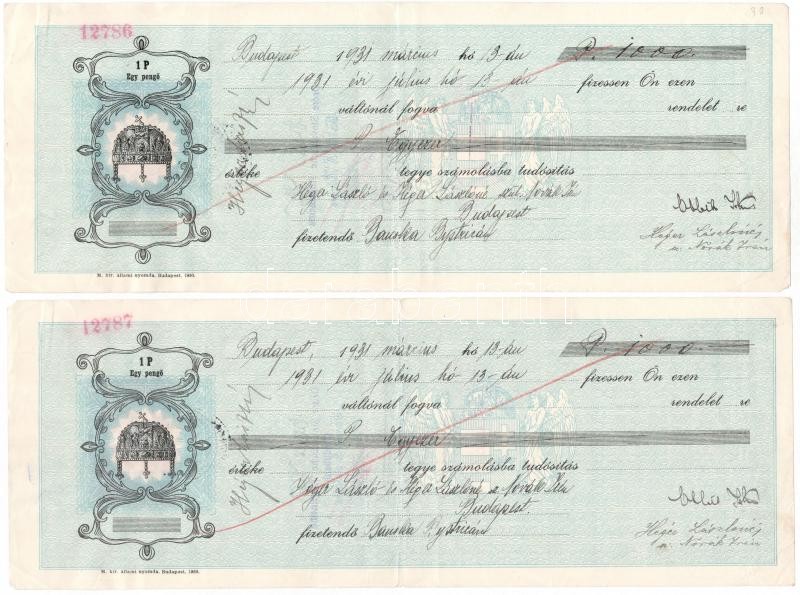 12786
1 P
Egy pengő
Budapest 1931 március hó 13-án P. 1000.
1931 évi július hó 13-án fizessen Ön ezen
váltónál fogva rendelet re
P. Egyezer
értéke tegye számolásba tudósítás
László és László Novák
Budapest
fizetendő Banska Bystricán
László
Novák Irén
M. kir. állami nyomda. Budapest. 1930.
12787
1 P
Egy pengő
Budapest, 1931 március hó 13-án P. 1000.
1931 évi július hó 13-án fizessen Ön ezen
váltónál fogva rendelet re
P. Egyezer
értéke tegye számolásba tudósítás
Héger László és László Novák
Budapest
fizetendő Banska Bystricán
Novák Irén
M. kir. állami nyomda. Budapest. 1930.